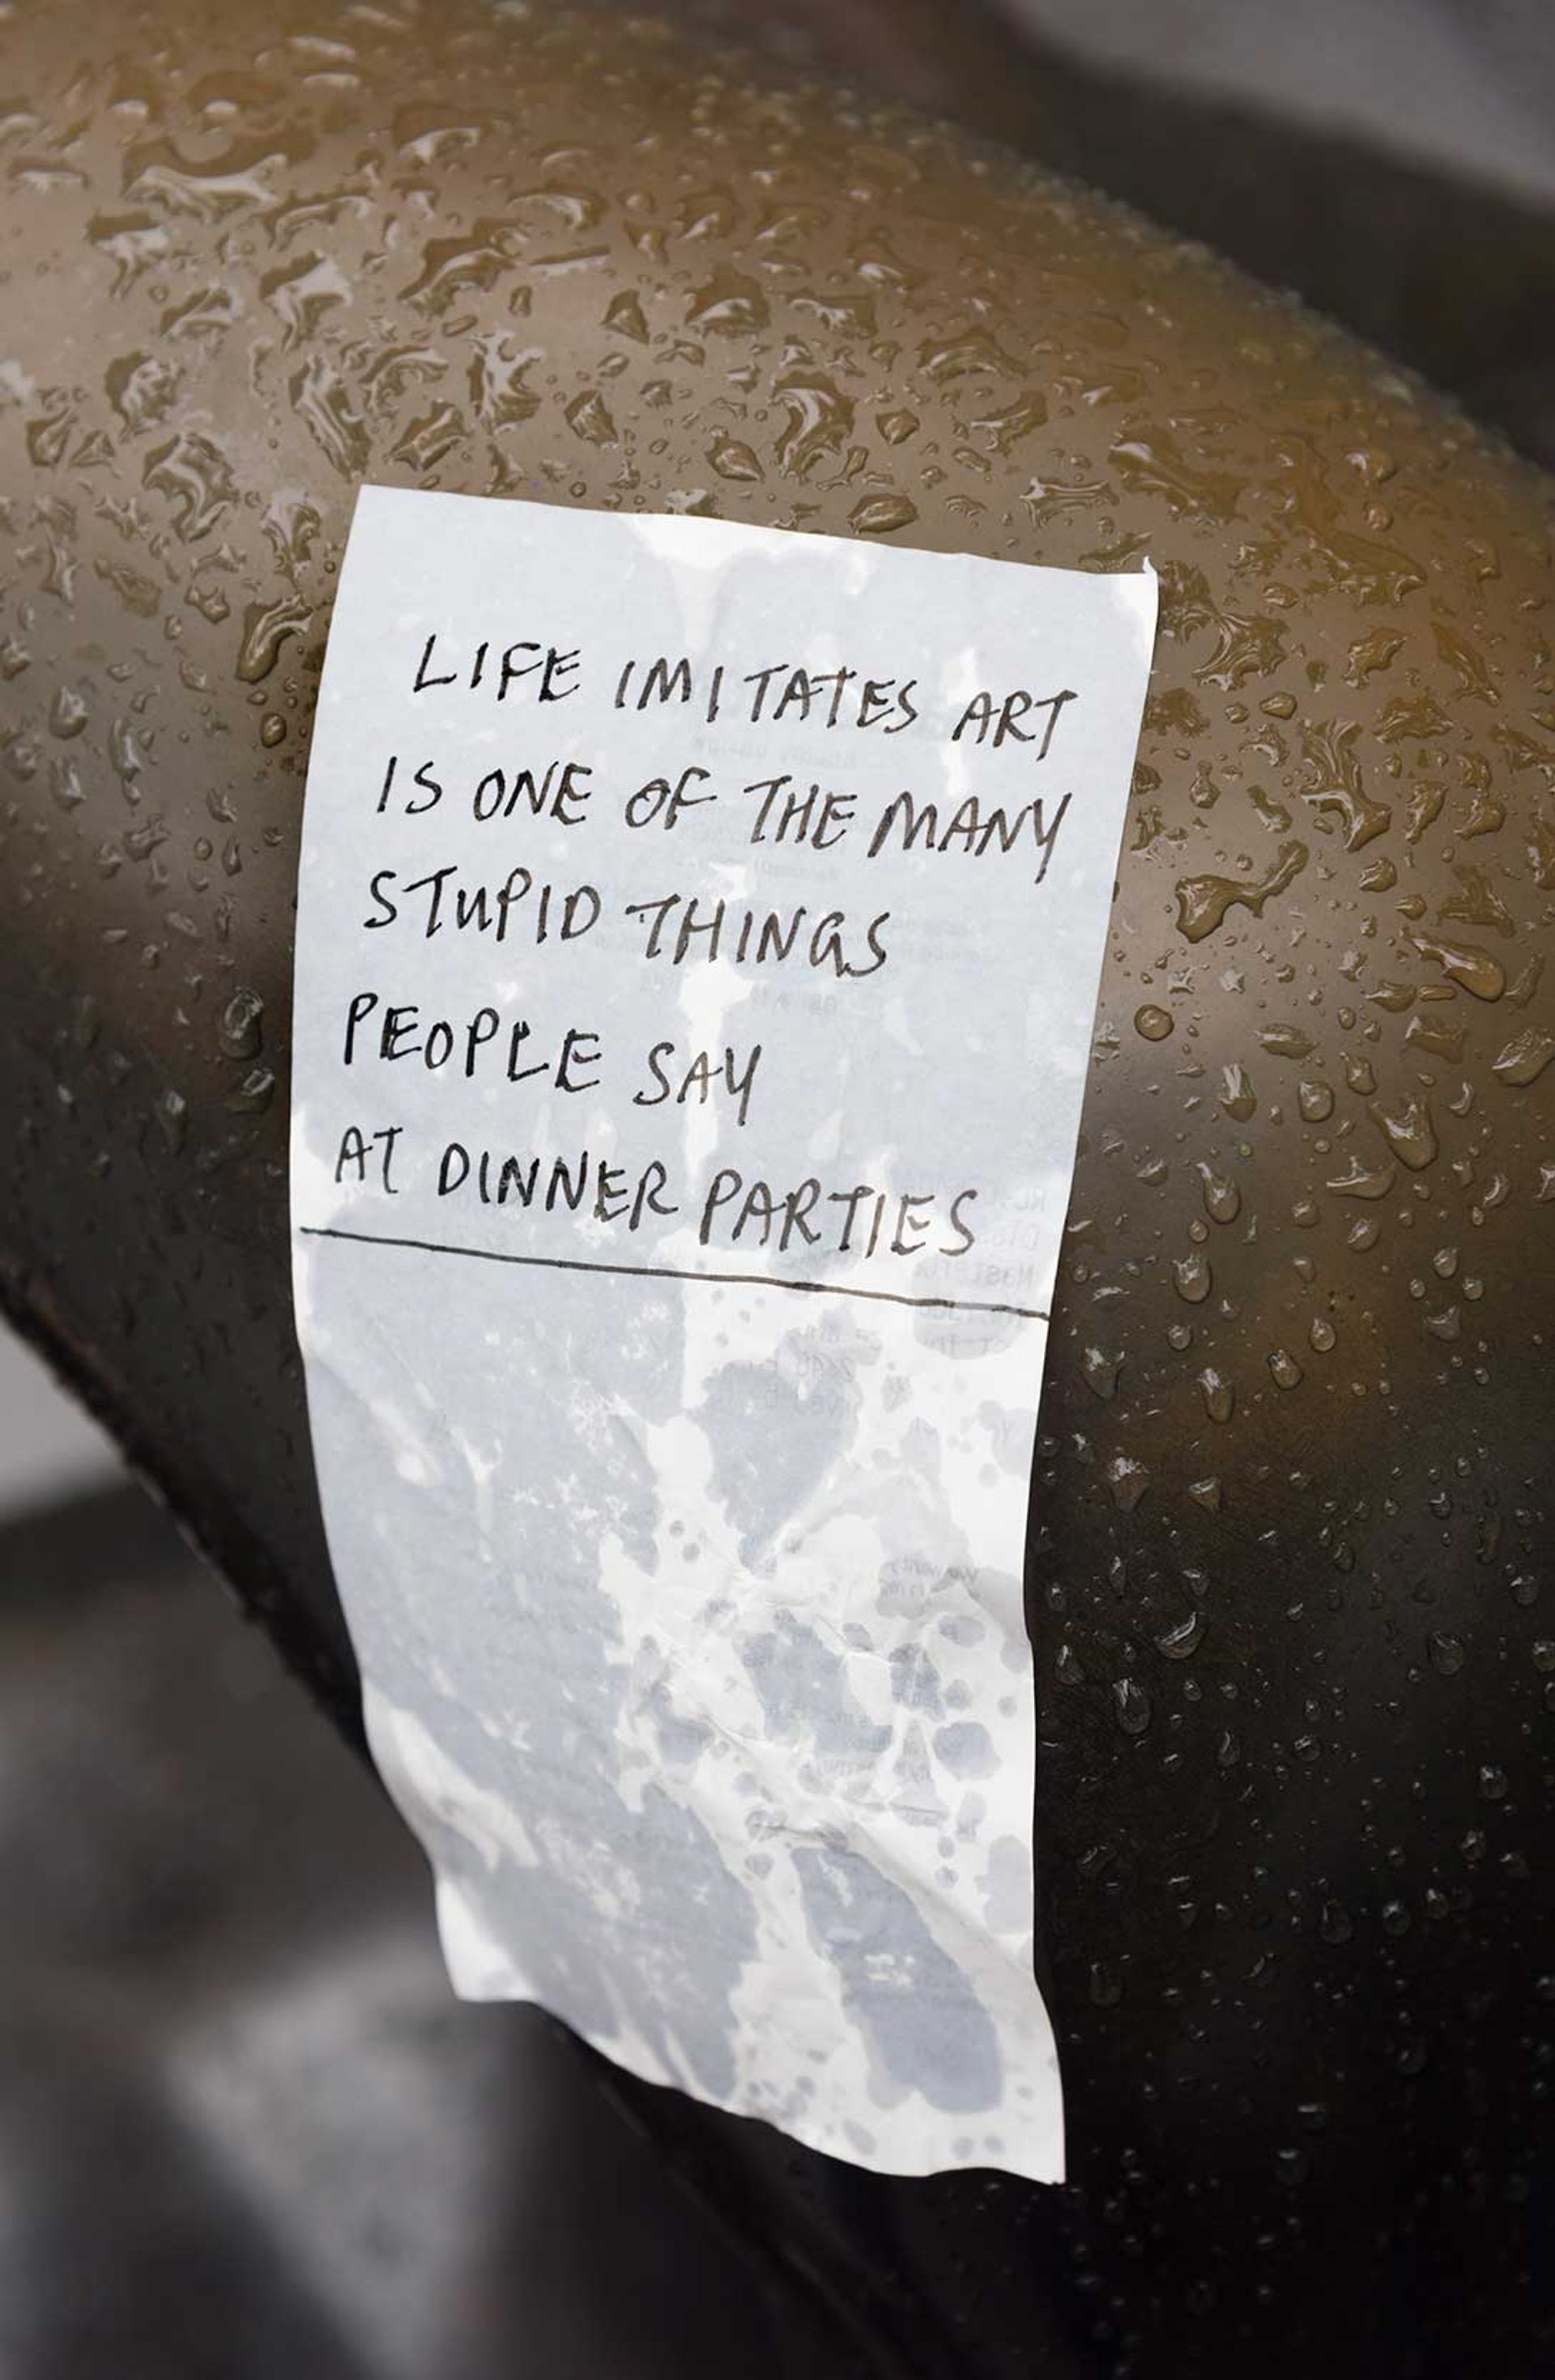 LIFE IMITATES ART
IS ONE OF THE MANY
STUPID THINGS
PEOPLE SAY
AT DINNER PARTIES